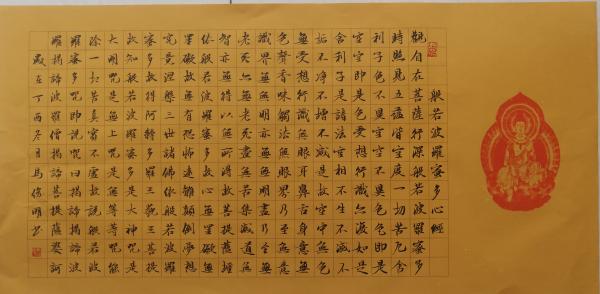 般若波羅蜜多心經
觀自在菩薩行深般若波羅蜜多
時照見五蘊皆空度一切苦厄舍
利子色不異空空不異色色即是
空空即是色受想行識亦復如是
舍利子是諸法空相不生不滅不
垢不淨不增不減是故空中無色
無受想行識無眼耳鼻舌身意無
色聲香味觸法無眼界乃至無意
識界無無明亦無無明盡乃至無
老死亦無老死盡無苦集滅道無
智亦無得以無所得故菩提薩埵
依般若波羅蜜多故心無罣礙無
罣礙故無有恐怖遠離顛倒夢想
究竟涅槃三世諸佛依般若波羅
蜜多故得阿耨多羅三藐三菩提
故知般若波羅蜜多是大神咒是
大明咒是無上咒是無等等咒能
除一切苦真實不虛故說般若波
羅蜜多咒即說咒曰揭諦揭諦波
羅揭諦波羅僧揭諦菩提薩婆訶
歲在丁酉冬月馬俊明书